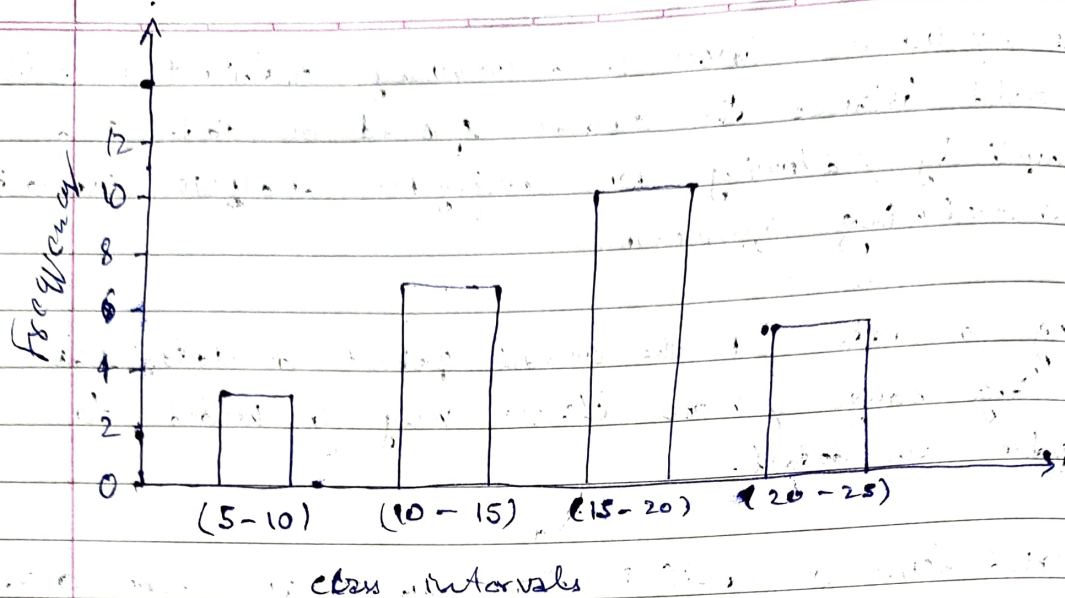 Frequency
12
10
8
6
4
2
0
(5-10) (10-15) (15-20) (20-25)
class intervals